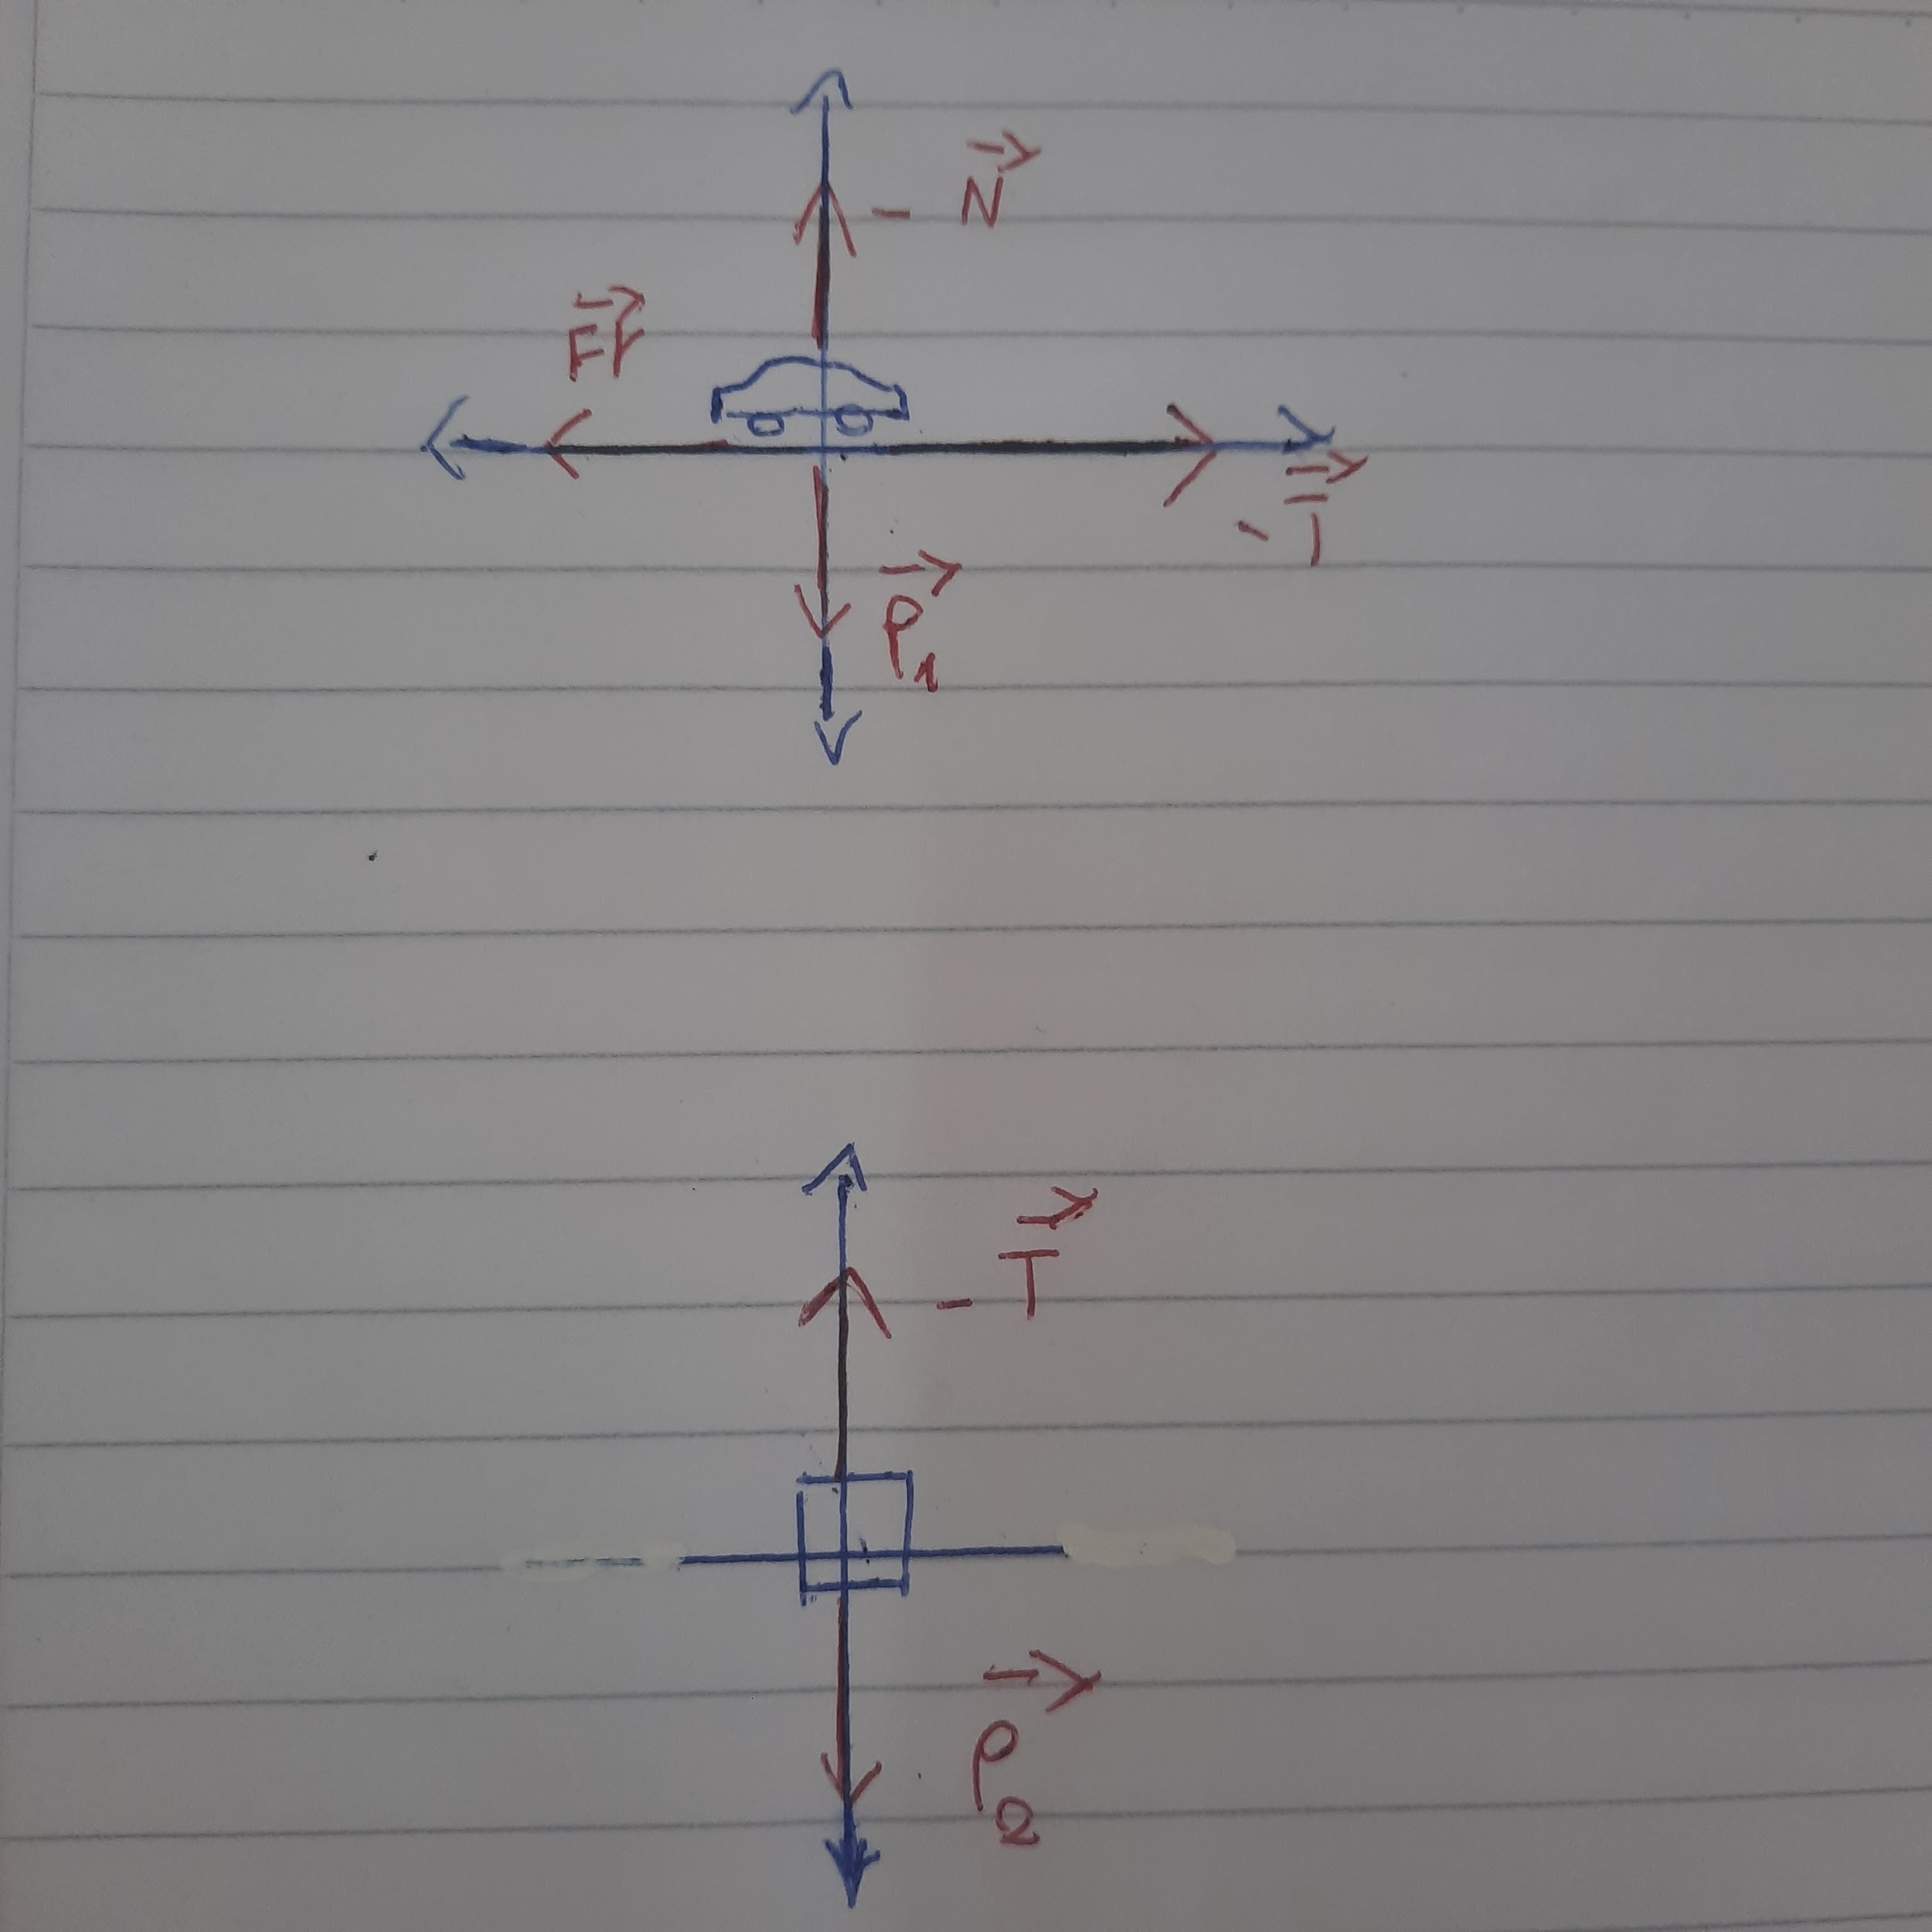 - N
Fr
- T
P1
- T
P2